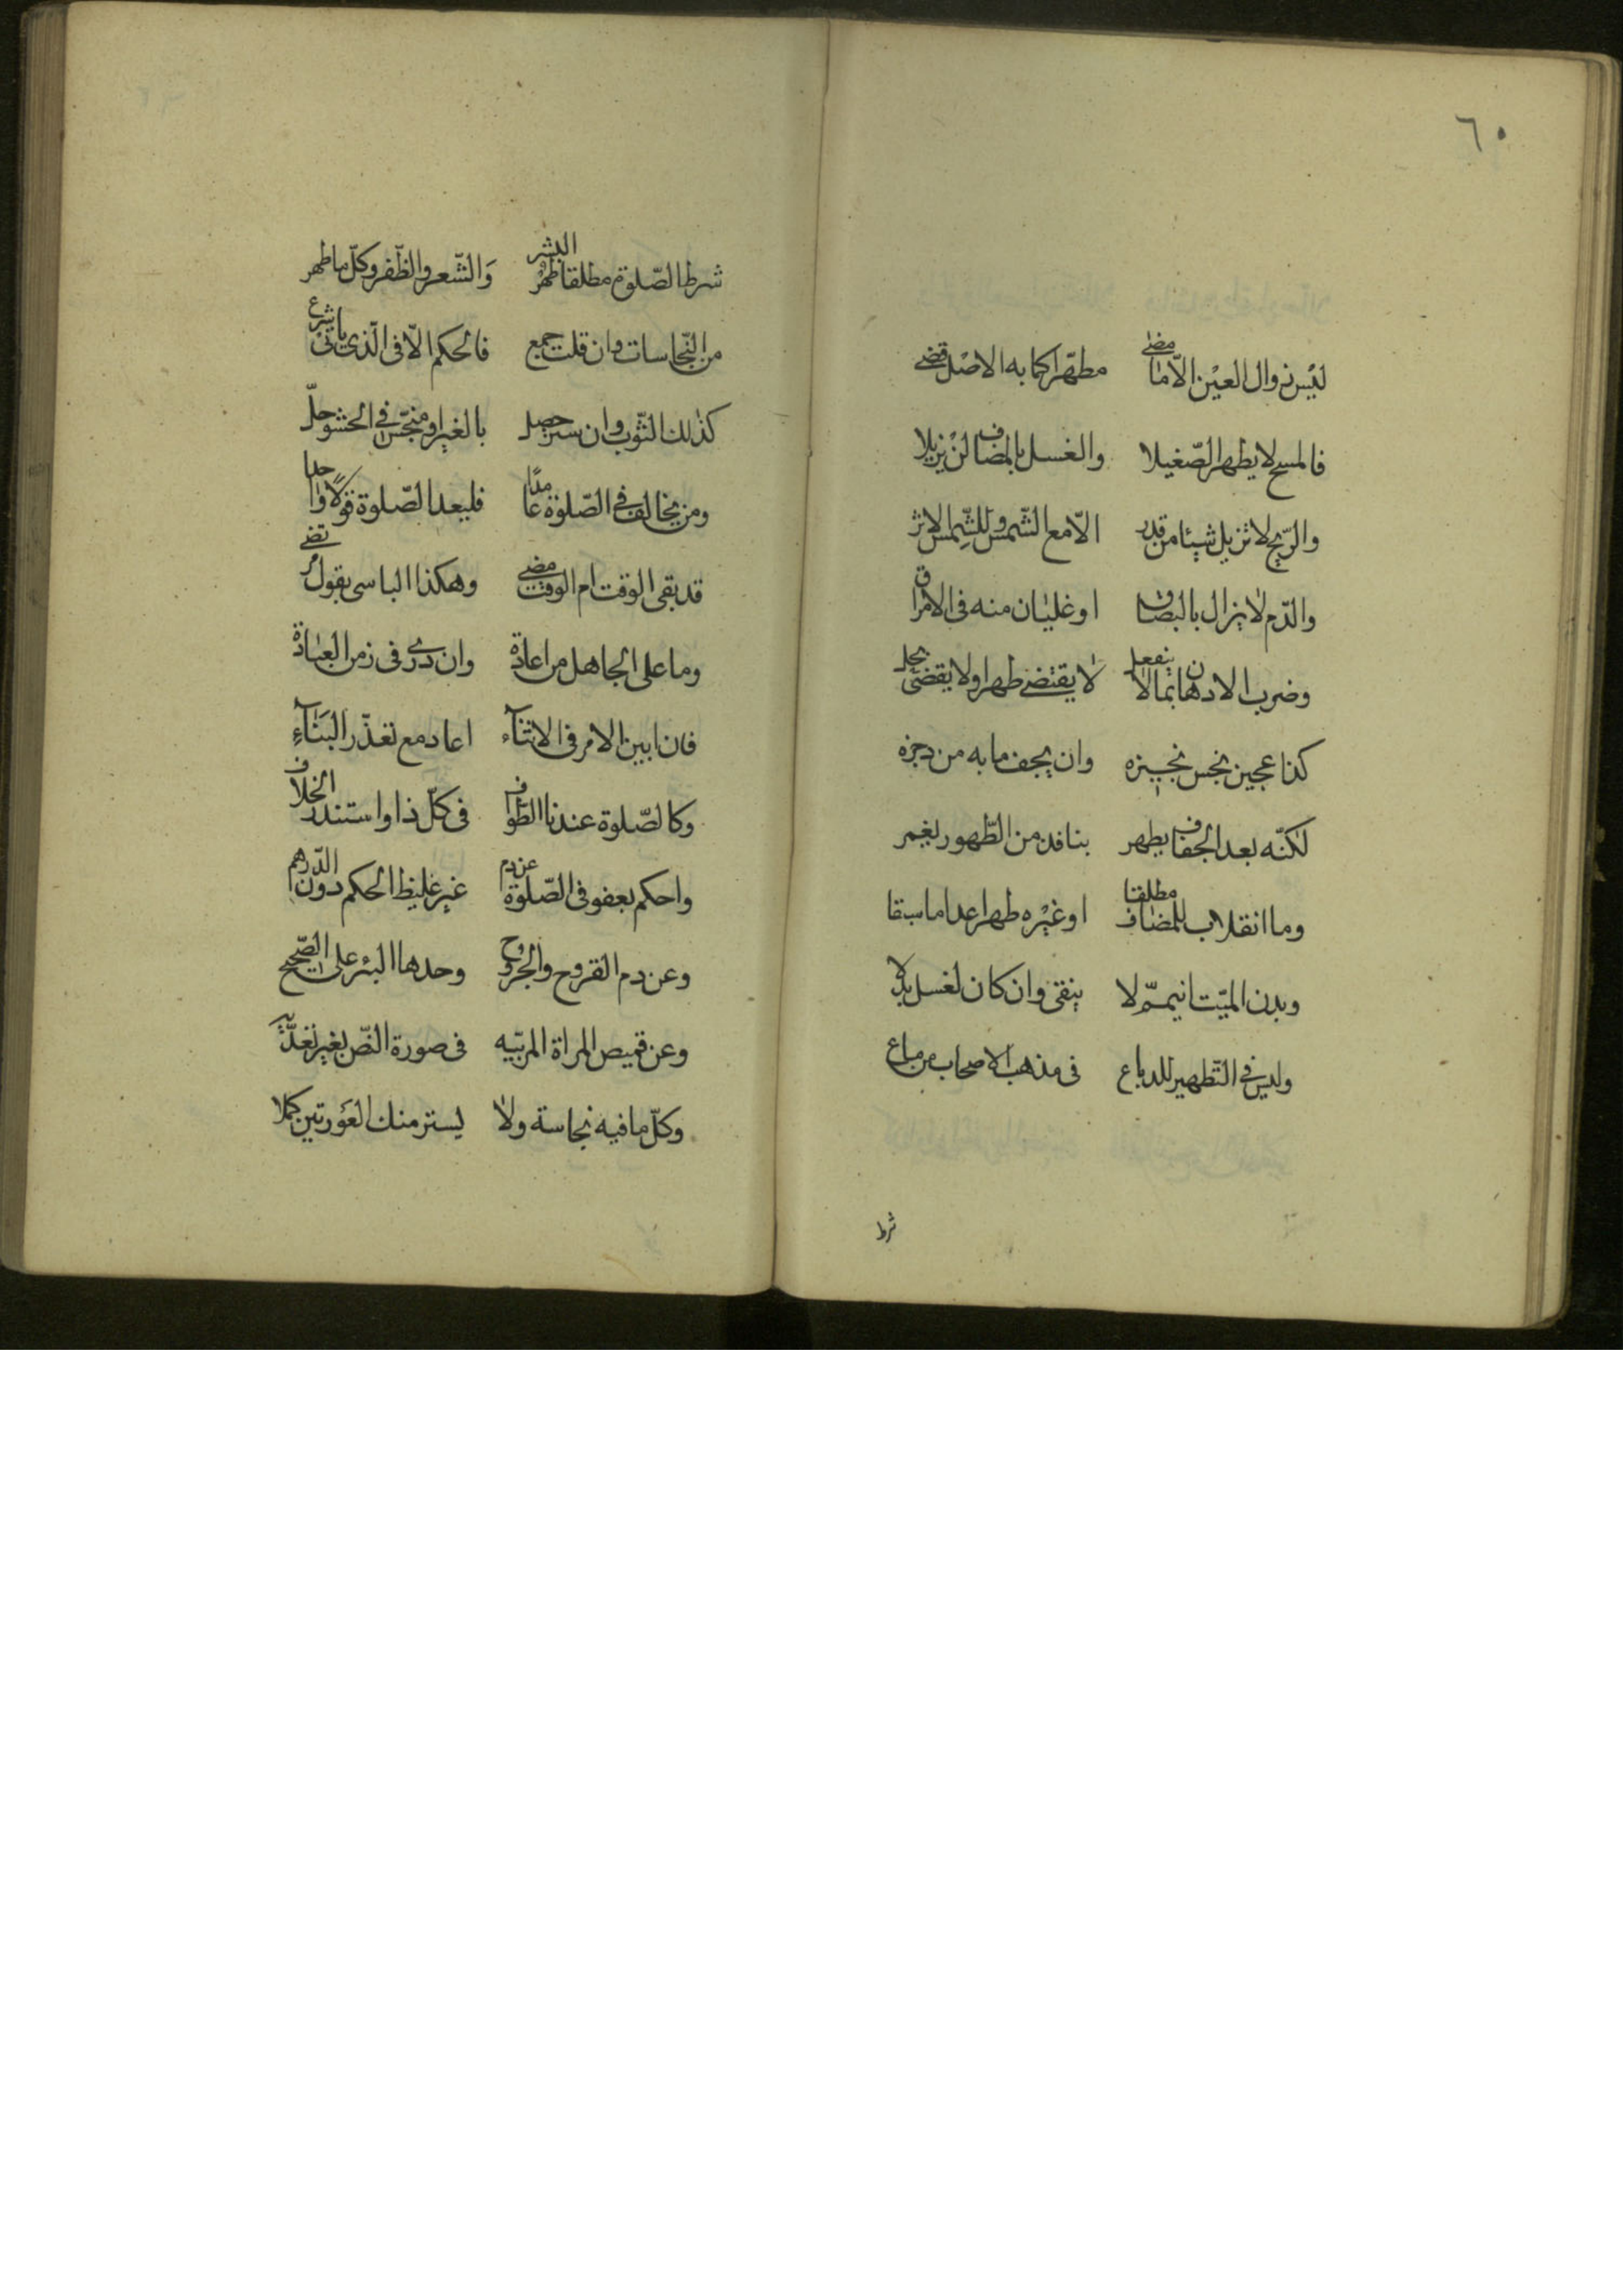 ٦٠
ليس زوال العين الّا ما مضى مطهّرا كما به الاصل قضى
فالمسح لا يطهر الصّقيلا والغسل بالمضاف لن يزيلا
والرّيح لا تزيل شيئا من قذر الّا مع الشّمس وللشّمس الاثر
والدّم لا يزال بالبصاق او غليان منه فى الامراق
وضرب الادهان بما لا ينفعل لا يقتضى طهرا ولا يقضى بحل
كذا عجين نجس بخبزه وان يجف ما به من رجزه
لكنّه بعد الجفاف يطهر بنافذ من الطّهور يغمر
وما انقلاب للمضاف مطلقا او غيره طهرا عدا ما سبقا
وبدن الميّت ان يمّم لا ينقى وان كان لغسل بدلا
وليس فى التّطهير للدباغ فى مذهب الاصحاب من مساغ
شرط
شرط الصّلوة مطلقا طهر البشر والشّعر والظّفر وكلّ ما ظهر
من النّجاسات وان قلت جمع فالحكم الّا فى الّذى ياتى شرع
كذلك الثّوب وان ستر حصل بالغير او منجّس فى الحشو حلّ
ومن يخالف فى الصّلوة عامدا فليعد الصّلوة قولا واحدا
قد بقى الوقت ام الوقت مضى وهكذا الناسى بقول مرتضى
وما على الجاهل من اعادة وان درى فى زمن العبادة
فان ابين الامر فى الاثناء اعاد مع تعذّر البناء
وكالصّلوة عندنا الطواف فى كلّ ذا واستندر الخلاف
واحكم بعفو فى الصّلوة عن دم غير غليظ الحكم دون الدّرهم
وعن دم القروح والجروح وحدها البرء على الصّحيح
وعن قميص المراة المربّيه فى صورة النّص بغير تعديه
وكلّ ما فيه نجاسة ولا يستر منك العورتين كملا